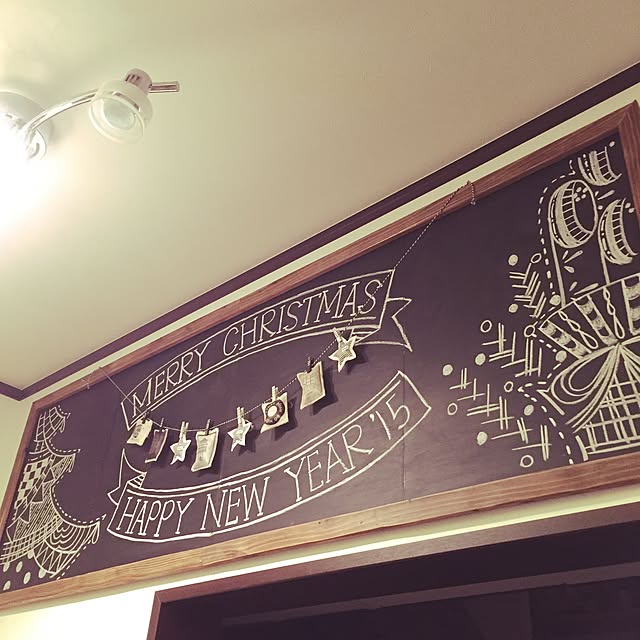 MERRY CHRISTMAS
HAPPY NEW YEAR '15